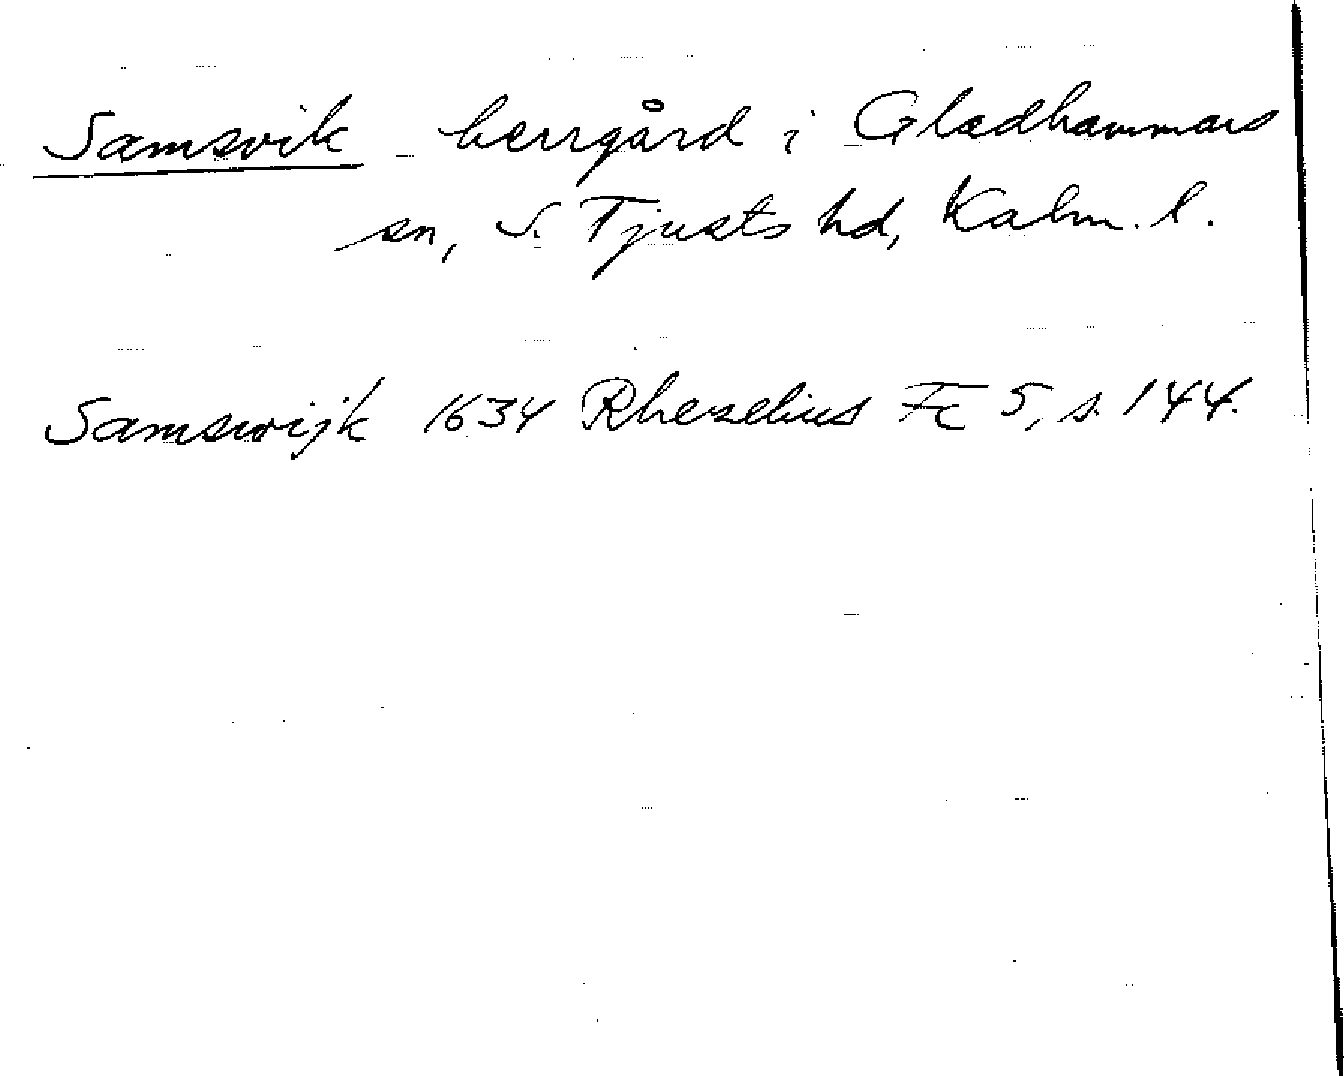 Samsvik herrgård i Gladhammars
sn, S. Tjusts hd, Kalm. l.
Samswijk 1634 Rhezelius Fc 5, s. 144.